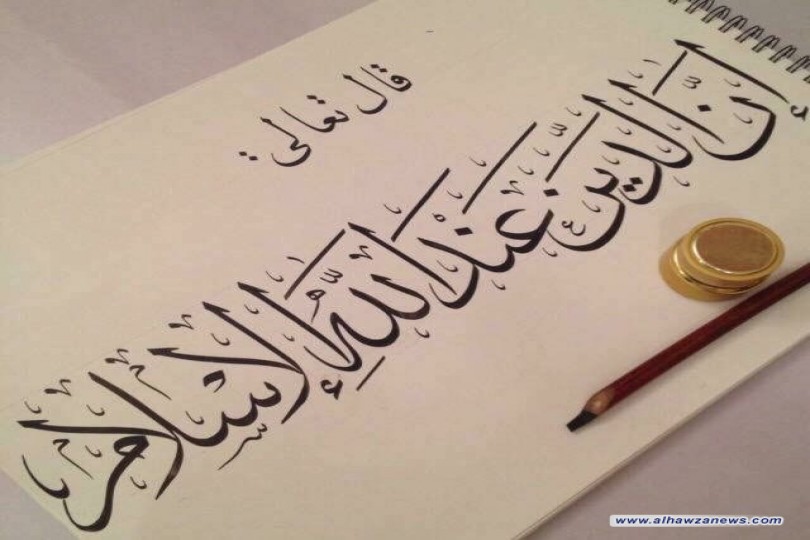 قال تعالى:
إنّ الدّين عند اللّه الإسلام
www.alhawzanews.com